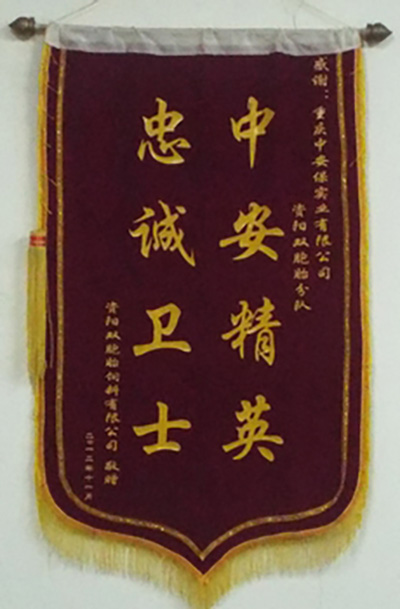 感谢：重庆中安保实业有限公司
资阳双胞胎分队
中安精英
忠诚卫士
资阳双胞胎饲料有限公司 敬赠
二〇一二年十一月